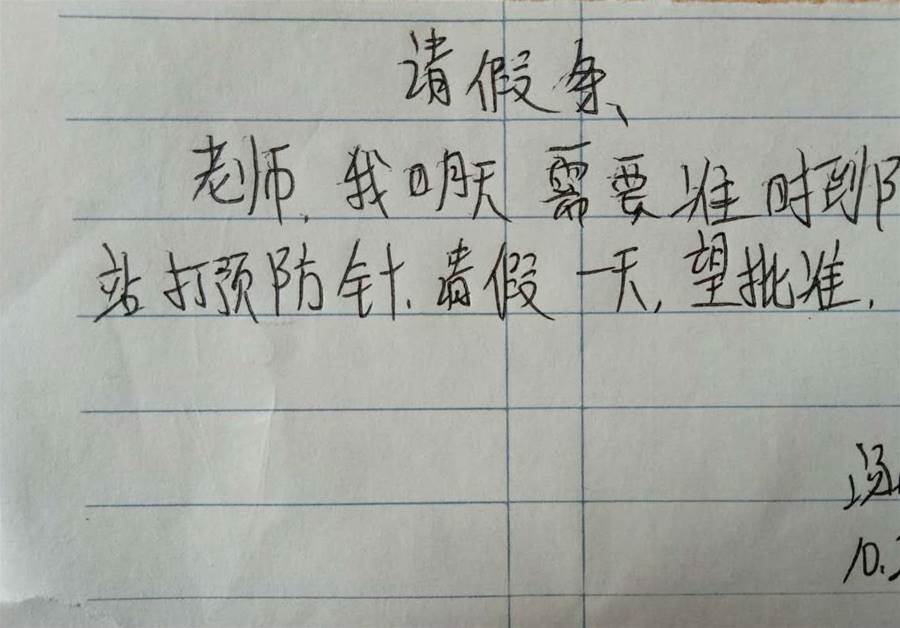 请假条
老师,我明天需要准时到防
站打预防针.请假一天,望批准.
10.